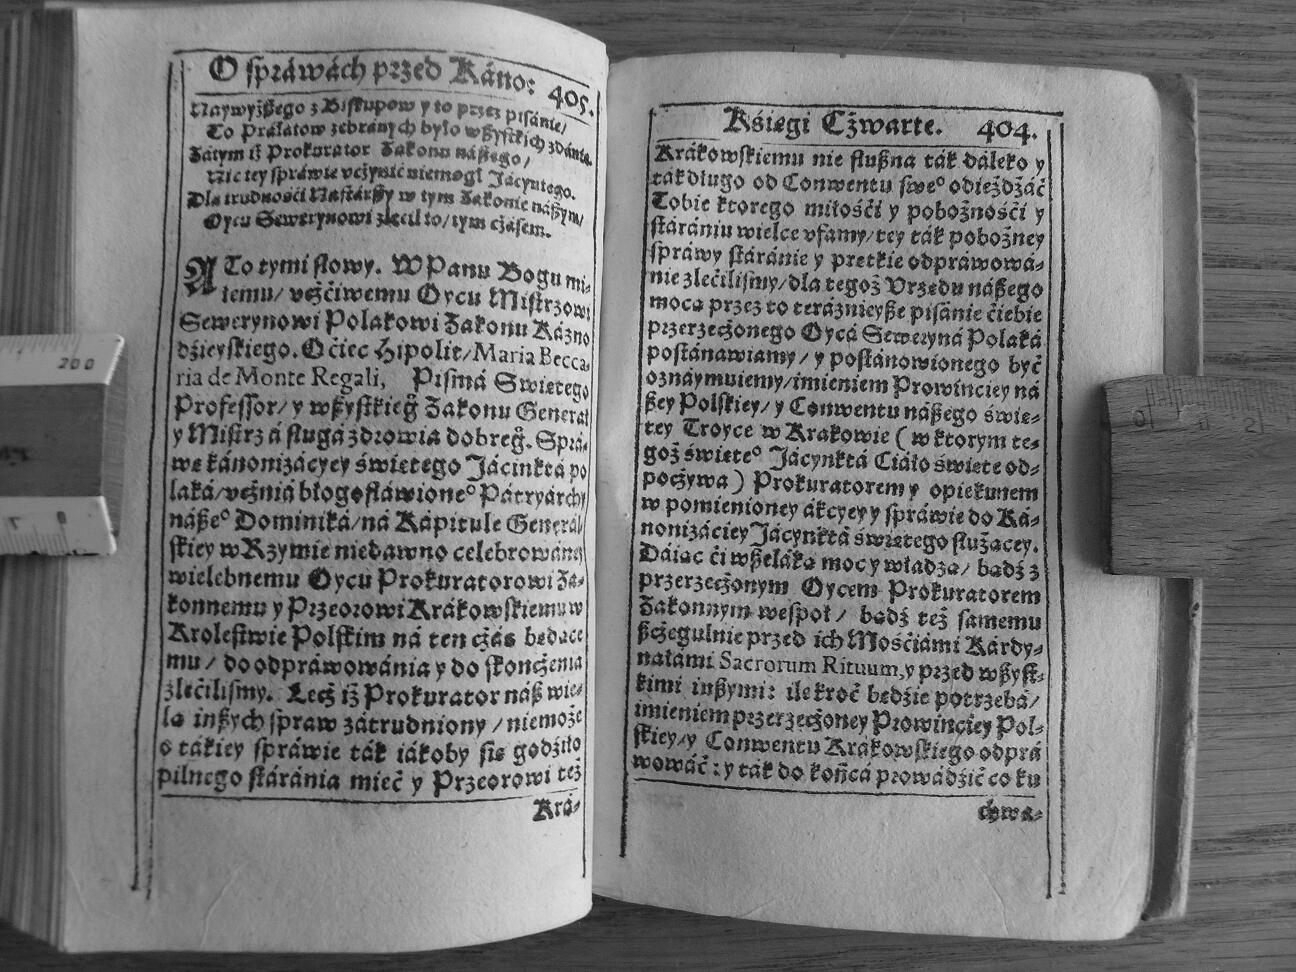 O spráwách przed Káno: 405.
Naywyższego z Biskupow y to przez pisánie/
To Práłatow zebránych było wßystkich zdánie.
Zátym iż Prokurator Zakonu náßego/
Nic tey spráwie vczynić niemogł Jácyntego.
Dla trudnośći Nastárßy w tym Zakonie náßym/
Oycu Sewerynowi zlećił to/ tym cżásem.
A To tymi słowy. W Panu Bogu mi-
łemu/ vczćiwemu Oycu Mistrzowi
Sewerynowi Polakowi Zakonu Kázno
dźieyskiego. Oćiec Hipolit/ Maria Becca-
ria de Monte Regali, Pismá Swietego
Professor/ y wßystkieg̃ Zakonu Generał
y Mistrz á sługá zdrowia dobreg̃. Sprá-
we kánonizácyey świetego Jácinktá po
laká/ vcżniá błogosłáwione° Pátryárchy
náße° Dominiká/ ná Kápitule Generał-
skiey w Rzymie niedawno celebrowáney
wielebnemu Oycu Prokuratorowi Zá-
konnemu y Przeorowi Krákowskiemu w
Krolestwie Polskim ná ten cżás bedące
mu/ do odpráwowánia y do skończenia
zlećilismy. Lecż iż Prokurator náß wie-
lą inßych spraw zátrudniony/ niemoże
o tákiey spráwie ták iákoby się godźiło
pilnego stáránia mieć y Przeorowi też
Krá-
Kśięgi Cżwarte. 404.
Krákowskiemu nie słußna ták dáleko y
ták długo od Conwentu swe° odieżdżáć
Tobie ktorego miłośći y pobożnośći y
stárániu wielce vfamy/ tey ták pobożney
spráwy stáránie y pretkie odpráwowá-
nie zlećilismy/ dla tegoż Vrzędu náßego
mocą przez to teráznieyße pisánie ćiebie
przerzecżonego Oycá Seweryná Polaká
postánawiamy/ y postánowionego być
oznáymuiemy/ imieniem Prowinciey ná
ßey Polskiey/ y Conwentu náßego świe-
tey Troyce w Krakowie (w ktorym te-
goż świete° Jácynktá Ciáło świete od-
pocżywa) Prokuratorem y opiekunem
w pomienioney ákcyey y spráwie do Ká-
nonizáciey Jácynktá świetego służącey.
Dáiąc ći wßeláką moc y władzą/ bądź z
przerzecżonym Oycem Prokuratorem
Zakonnym wespoł/ bądź też sámemu
ßcżegulnie przed ich Mośćiámi Kárdy-
nałami Sacrorum Rituum, y przed wßyst-
kimi inßymi: ile kroć będźie potrzebá/
imieniem przerzecżoney Prowinciey Pol-
skiey/ y Conwentu Krákowskiego odprá
wowáć: y ták do końcá prowádźić co ku
chwa-